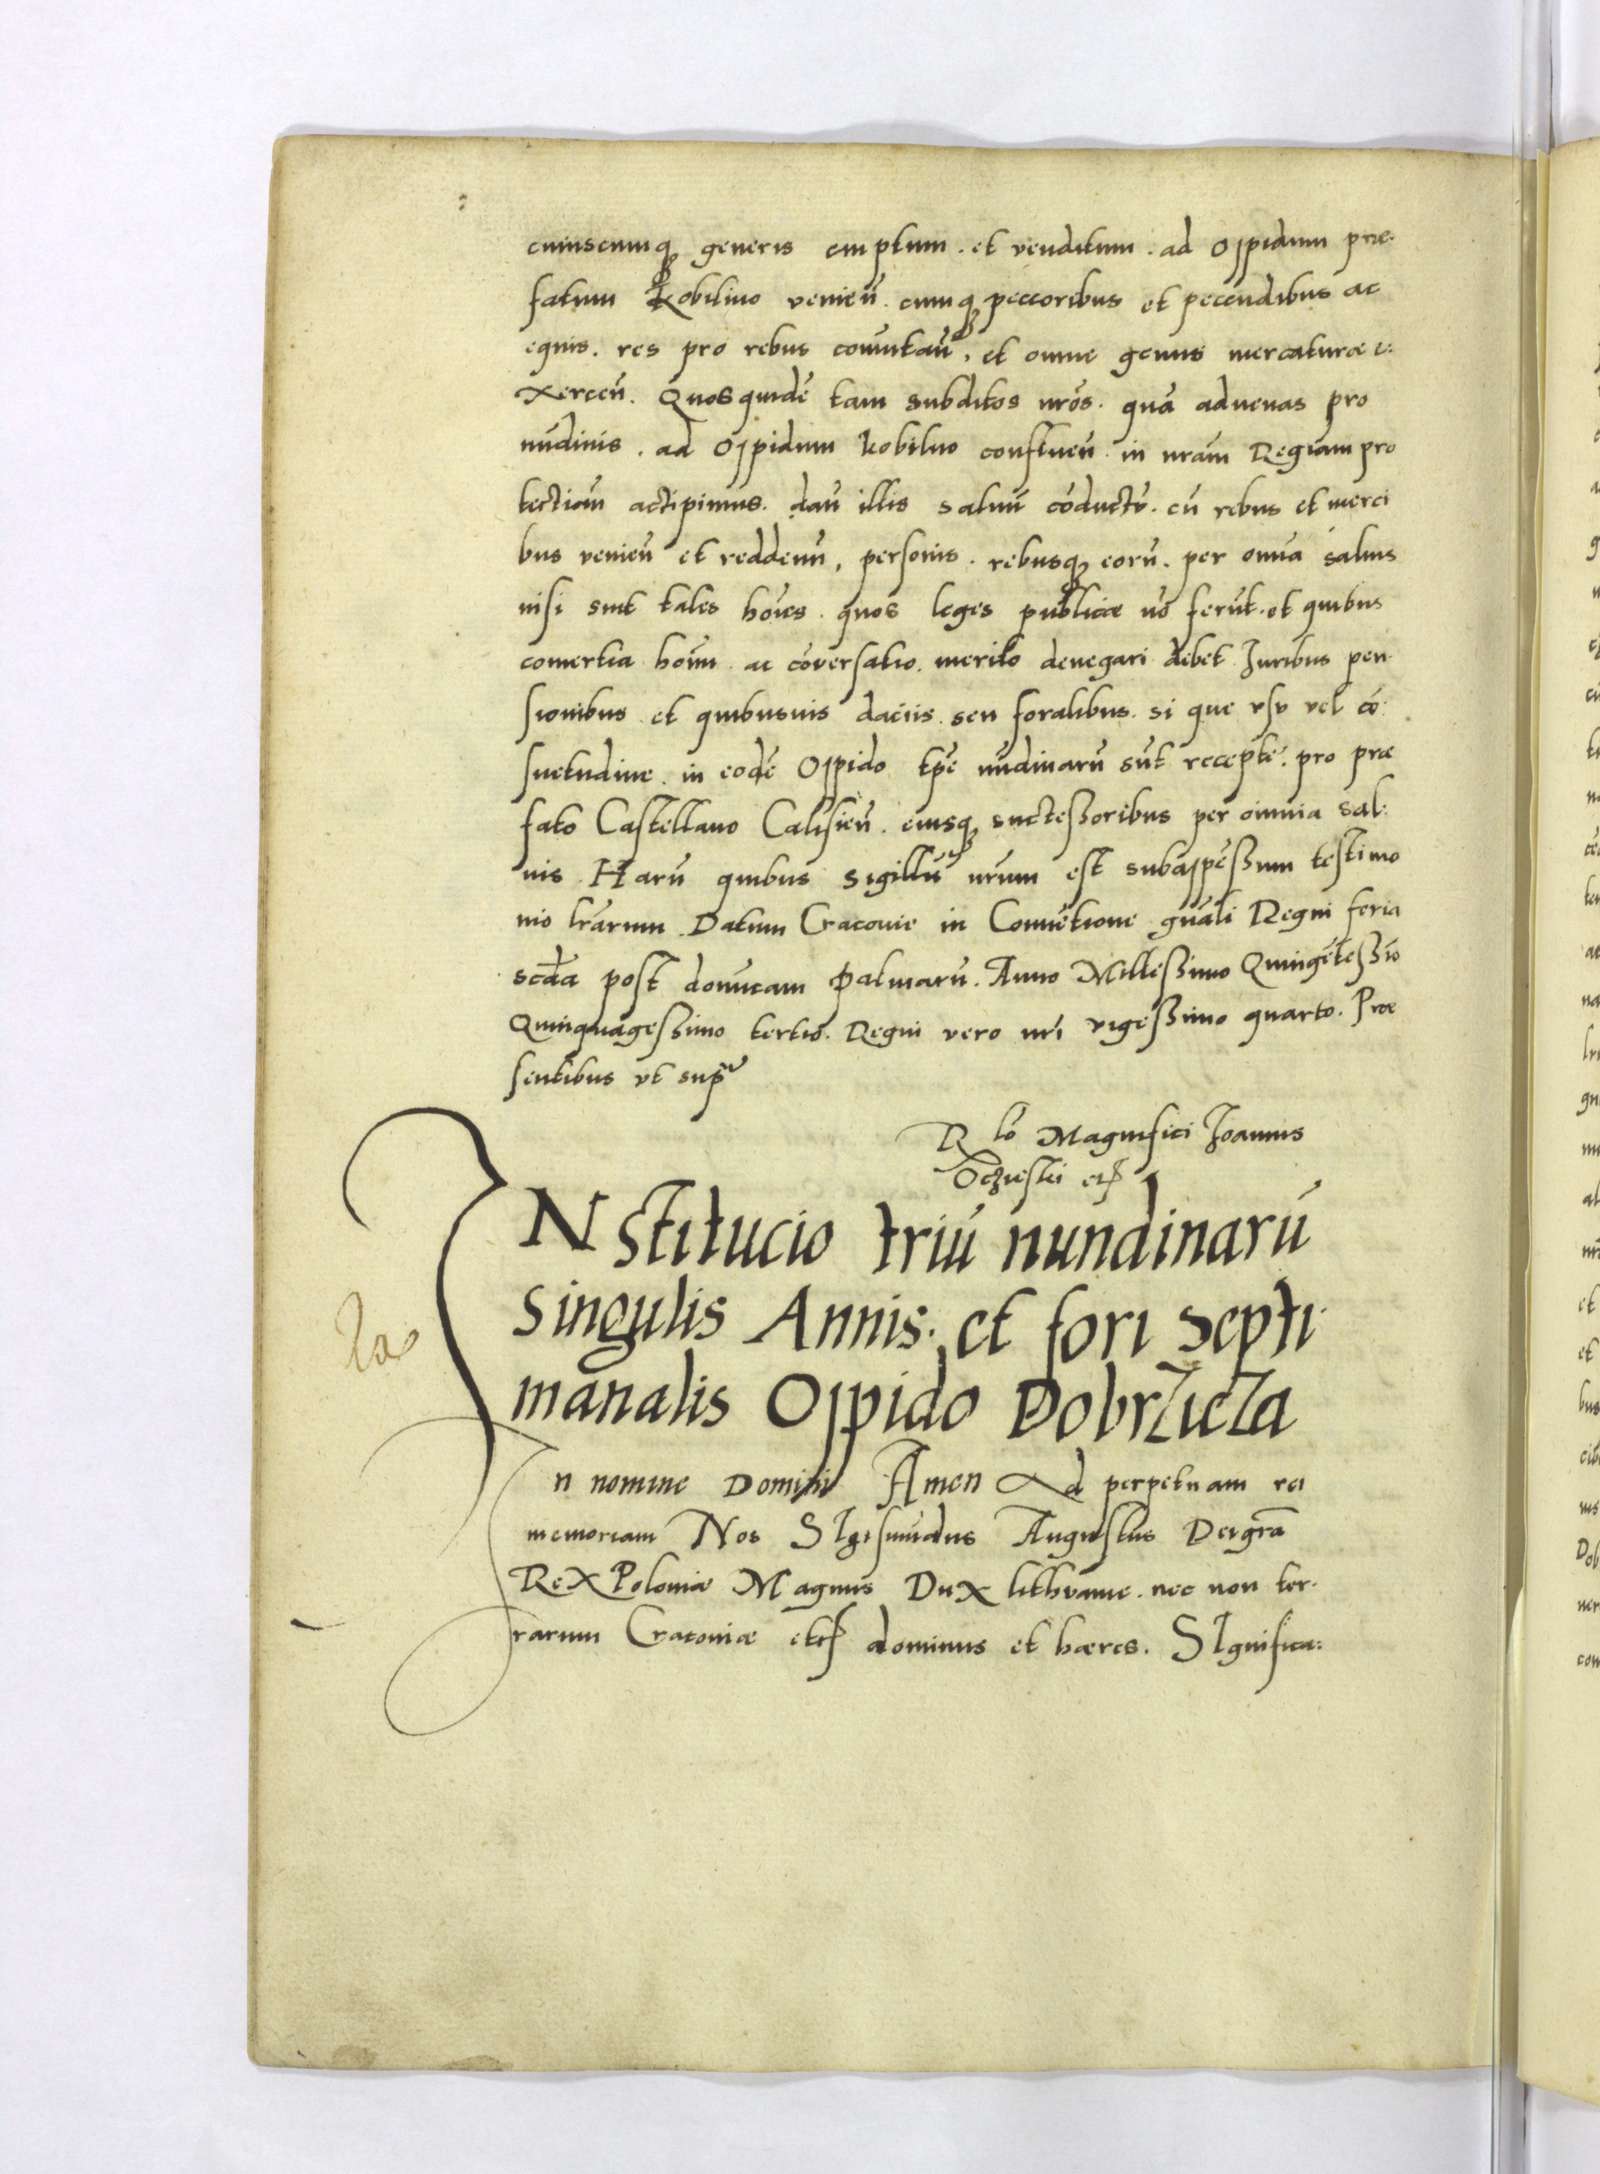 cuiuscunq generis emptum . et venditum . ad Oppidum præ-
fatum Kobilino venień . cumq peccoribus et peccudibus ac
equis . res pro rebus comutań , et omne genus mercaturæ e-
xerceń . Quosquidē tam subditos nrōs . quā advenas pro
nūdinis . ad Oppidum kobilno confluēn in nrām Regiam pro
tectiōm accipimus . dań illis saluū cōductū . cū rebus et merci
bus venień et reddeuń , personis . rebusq eorū . per omīa saluis
nisi sint tales hoīes . quos leges publicæ nō ferūt . et quibus
comertia hoīm ac cōversatio . merito denegari debet Iuribus pen
sionibus et quibusuis daciis . seu foralibus . si que vsu vel cō-
suetudine . in eodē Oppido tpē nūdinarū sūt recepte . pro præ
fato Castellano Calisień . eiusq successoribus per omnia sal-
uis . Harū quibus sigillū nrūm est subappēssum testimo
nio lrārum . Datum Cracovie in Conuētione gnāli Regni feria
scdā post domīcam Palmarū . Anno Millessimo Quingētessīo
Quinquagessimo tertio . Regni vero nrī vigessimo quarto . Præ
sentibus vt supª
R lō Magnifici Joannis
Oczieski etc
INstitucio triū nundinarū
singulis Annis . et fori septi-
manalis Oppido Dobrzicza
In nomine Domini Amen Ad perpetuam rei
memoriam Nos SIgismūdus Augustus Dei grā
ReX Poloniæ Magnus DuX lithvanie . nec non ter-
rarum Cracoviæ etc dominus et hæres . SIgnifica-